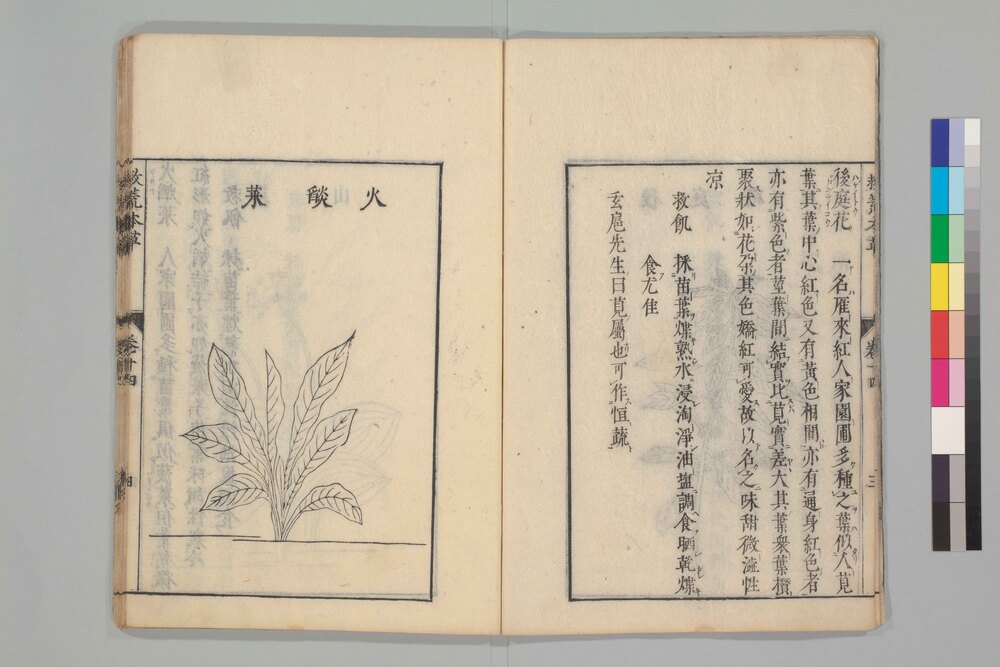 後庭花 一名雁來紅人家園圃多種之葉似人莧
葉其葉中心紅色又有黃色相間亦有通身紅色者
亦有紫色者莖葉間結實比莧實差大其葉衆葉攢
聚狀如花朶其色嬌紅可愛故以名之味甜微澁性
凉
救飢 採苗葉煠熟水浸淘淨油塩調食晒乾煠
食尤佳
玄扈先生曰莧屬也可作恒蔬
火燄菜
救荒本草 卷十四 四